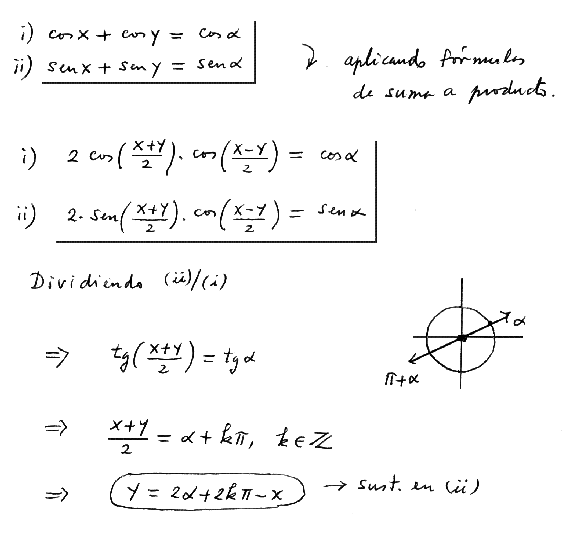 i) cos x + cos y = cos α
ii) sen x + sen y = sen α
aplicando fórmulas
de suma a producto.
i) 2 cos((x+y)/2) · cos((x-y)/2) = cos α
ii) 2 · sen((x+y)/2) · cos((x-y)/2) = sen α
Dividiendo (ii)/(i)
⇒ tg((x+y)/2) = tg α
α
π+α
⇒ (x+y)/2 = α + kπ, k ∈ ℤ
⇒ y = 2α + 2kπ - x → sust. en (ii)